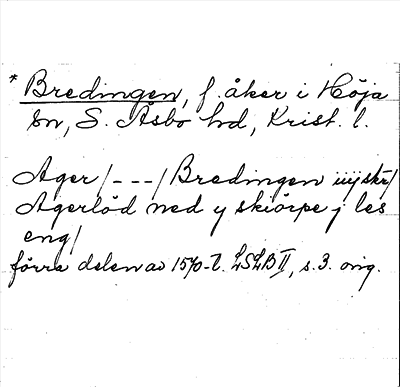 * Bredingen, f. åker i Höja
sn, S. Åsbo hd, Krist. l.
Ager/---/Bredingen iiij skr/
Agerlöd med y skiörpe j les
eng/
förra delen av 1570-t. LSLB II, s. 3. orig.